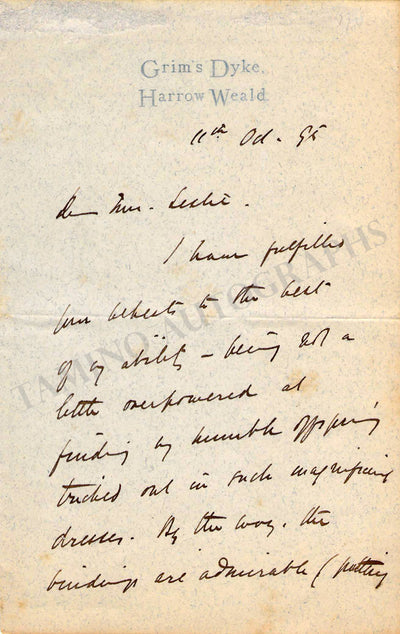 Grim's Dyke,
Harrow Weald.
11th Oct. 95
Dear Mrs. Leslie.
I have fulfilled
your behests to the best
of my ability – being not a
little overpowered at
finding my humble offspring
tricked out in such magnificent
dresses. By the way, the
bindings are admirable (putting
TAMINO AUTOGRAPHS